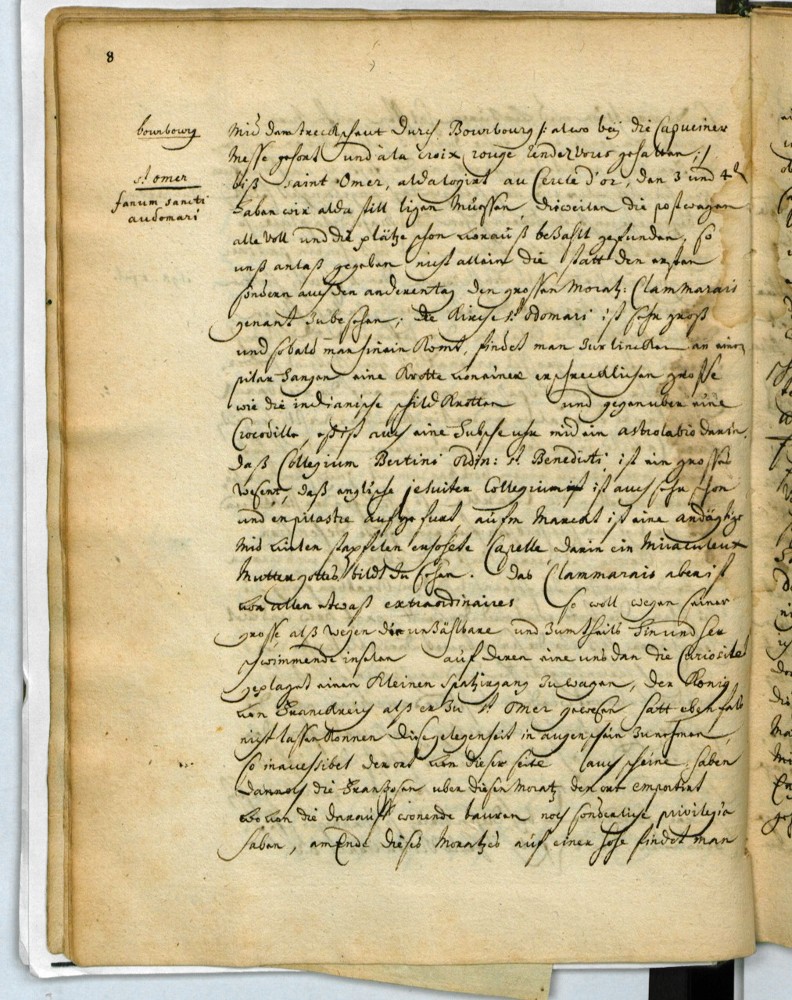 8
bourbourg
st omer
fanum sancti
audomari
Mid dem treckschuit durch Bourbourg /: alwo beÿ die Capuciner
Messe gehort und a la croix rouge rendevous gehalten ;/
biß saint Omer, alda logirt au Cercle d'or, den 3 und 4t
haben wir alda still ligen Müessen, diweilen die postwagen
alle voll und die plätze schon voraus bezahlt gefunden, so
unß anlaß gegeben nicht allein die statt den ersten
sondern auch den anderen tag den grossen Moratz: Clammarais
genant zu besehen; die Kirche st odomari ist sehr groß
und sobald man hinein komt, findet man zur lincken an einer
pilar hangen eine Krotte von einer erschrecklichen grösse
wie die indianische schild Krotten und gegenuber eine
Crocodille, esist auch eine hubsche uhr mid ein astrolabio darin,
daß Collegium Bertini ordin: st Benedicti ist ein grosses
wesent, daß englische jesuiten Collegium ist auch sehr schon
und en pilastre aufgefurt, aufm Marckt ist eine andächtige
Mid vielen stapfelen erhohete Capelle darin ein Miraculeux
Mutter gottes bildt zu sehen. das Clammarais aber ist
von allen etwaß extraordinaires so woll wegen seiner
grosse alß wegen die unzählbare und zum theils hin und her
schwimmende inselen auf deren eine uns dan die Curiositet
geplagt einen Kleinen spatzirgang zu wagen, der Konig
von Franckreich alß er zu st omer gewesen hatt eben fals
nicht lassen konnen diese gelegenheit in augenschein zu nehmen,
so inaccessibel der ort von dieser seite auch scheine, haben
dannoch die Franzosen uber diesen Moratz den ort emportirt
wovon die darauff wonende bauren noch sonderliche privilegia
haben, am Ende dieses Moratzes auf einer hohe findet man